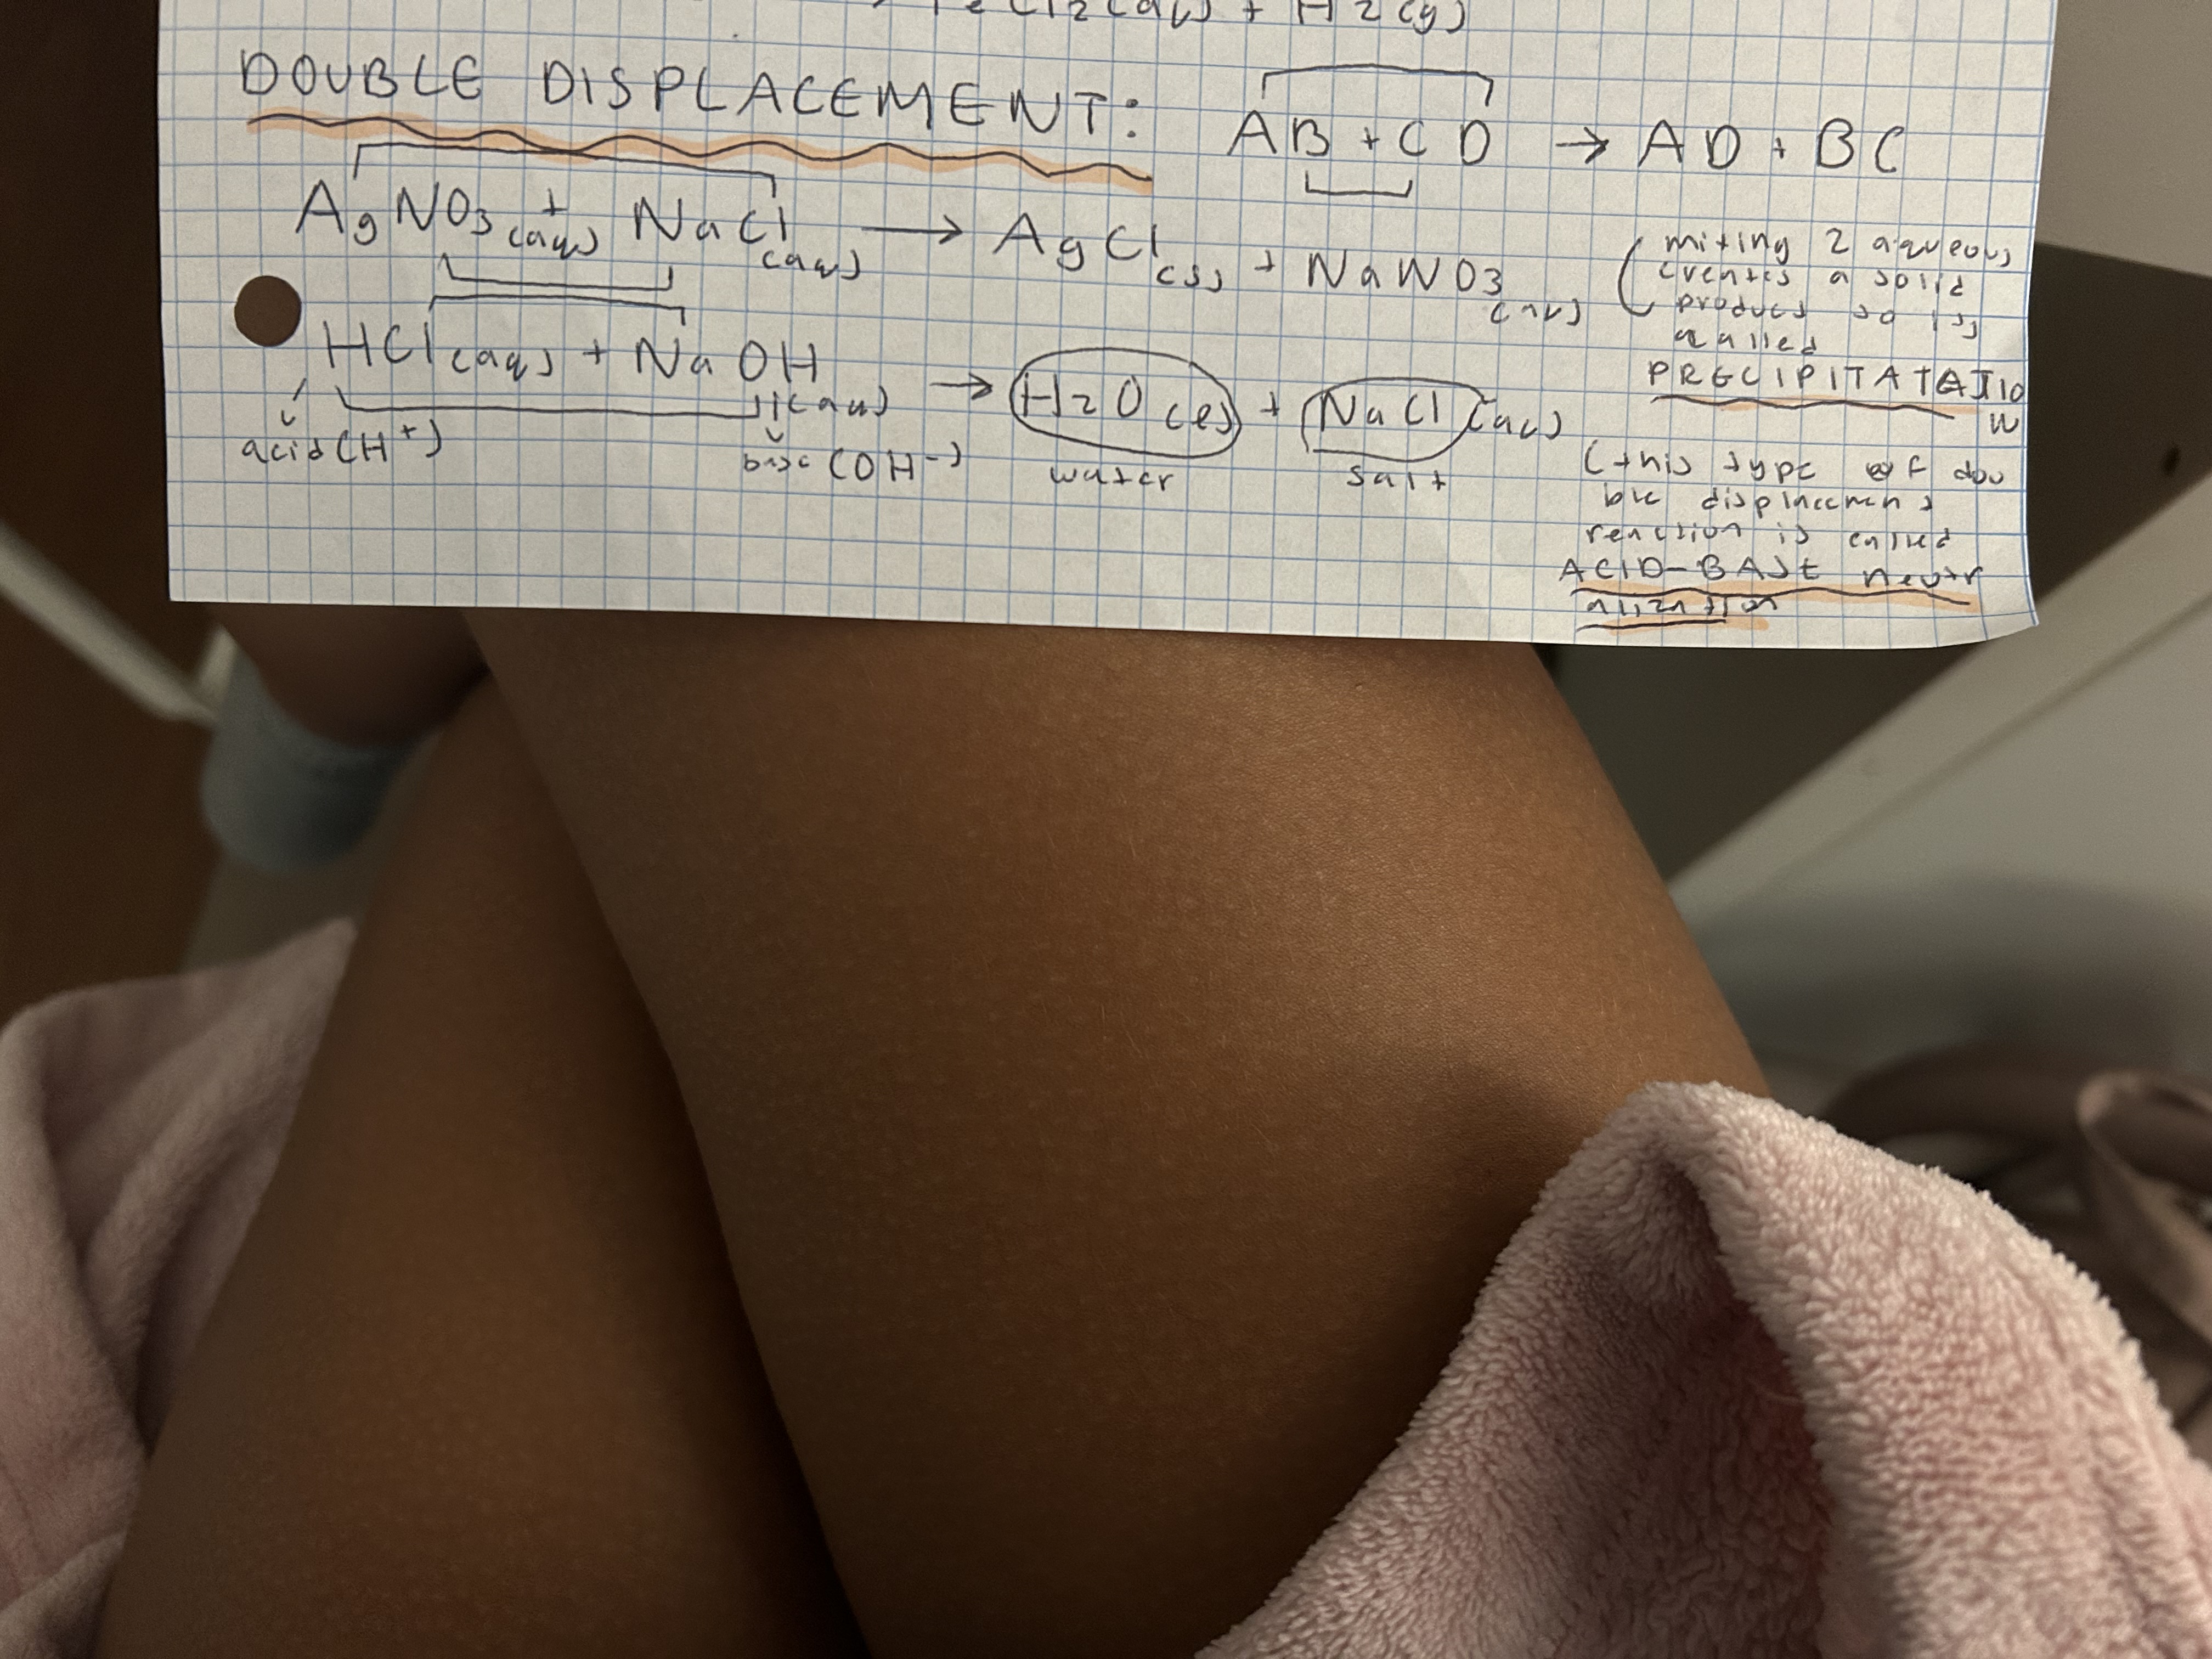 → FeCl2(aq) + H2(g)
DOUBLE DISPLACEMENT: AB + CD → AD + BC
AgNO3(aq) + NaCl(aq) → AgCl(s) + NaNO3(aq)
(mixing 2 aqueous
creates a solid
product so is
called
PRECIPITATATIO
N
HCl(aq) + NaOH(aq) → H2O(l) + NaCl(aq)
acid(H+) base(OH-) water salt
(this type of dou
ble displacement
reaction is called
ACID-BASE neutr
alization